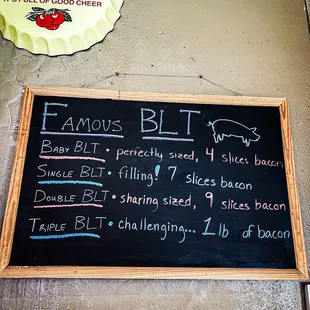 IT'S FULL OF GOOD CHEER
FAMOUS BLT
BABY BLT • perfectly sized, 4 slices bacon
SINGLE BLT • filling! 7 slices bacon
DOUBLE BLT • sharing sized, 9 slices bacon
TRIPLE BLT • challenging... 1 lb of bacon